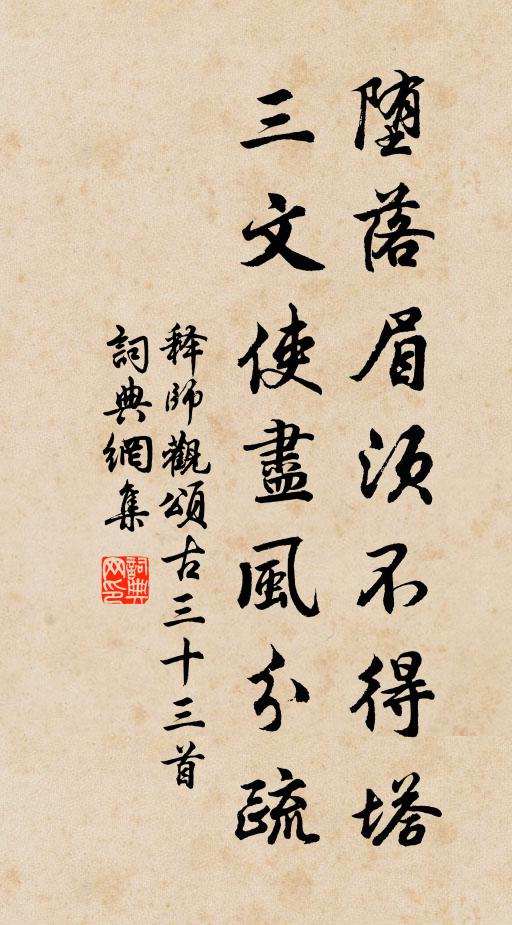 堕落眉须不得塔
三文使盡風分疏
释師觀頌古三十三首
詞典網集
詞典网印